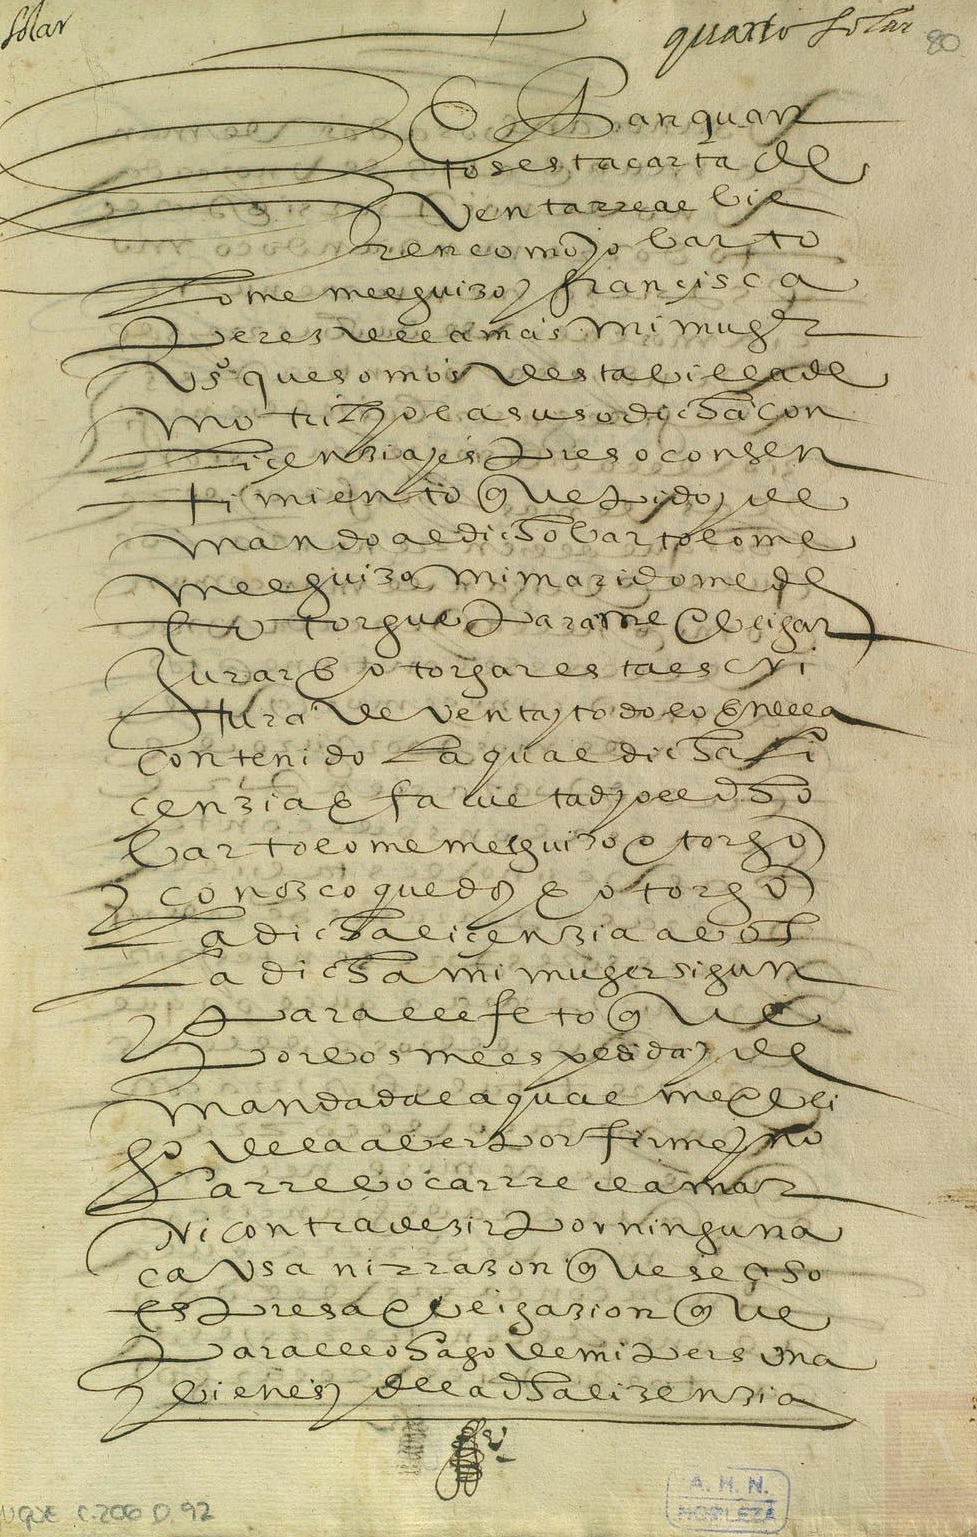 solar
quarto solar
80
Sepan quan
tos esta carta de
Venta rreal bie
ren como yo barto
lome melguizo y françisca
perez de lamas mi muger
Vsº que somos desta billa de
motril yo la susodicha con
liçenzia y espreso consen
timiento que pido y de
mando al dicho bartolome
melguizo mi marido me de
E otorgue para me obligar
jurar E otorgar esta escri
tura de venta y todo lo En ella
contenido La qual dicha li
çenzia E facultad yo el dho
bartolome melguizo otorgo
y conozco que doy E otorgo
La dicha liçenzia a bos
La dicha mi muger sigun
y para el efeto que
por bos me es pedida y de
mandada la qual me obli
go de la aber por firme y no
La rrebocar rreclamar
Ni contradezir por ninguna
caVsa ni rrazon que sea so
espresa obligazion que
para ello hago de mi persona
y bienes y de la dha lizenzia
UQUE C.206 D.92
A. H. N.
NOBLEZA